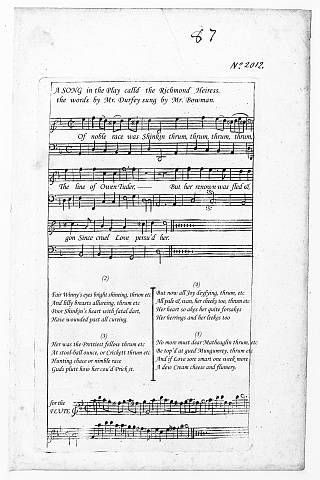 87
No. 2012.
A SONG in the Play calld the Richmond Heiress.
the words by Mr. Durfey sung by Mr. Bowman.
Of noble race was Shinkin thrum, thrum, thrum, thrum,
The line of Owen Tuder, But her renown was fled &
gon Since cruel Love persu'd her.
(2)
Fair Winny's eyes bright shining, thrum etc
And lilly breasts alluring, thrum etc
Poor Shinkin's heart with fatal dart,
Have wounded past all cureing.
(3)
Her was the Prettiest fellow thrum etc
At stool-ball ounce, or Crickett thrum etc
Hunting chace or nimble race
Gads plutt how her cou'd Prick it.
But now all Joy defying, thrum, etc
All pale & wan, her cheeks too, thrum etc
Her heart so akes her quite forsakes
Her herrings and her leekes too
(5)
No more must dear Mathaglin thrum, etc
Be top'd at gued Mungumrey, thrum etc
And if Love sore smart one week more
A dew Cream cheese and flumery.
for the
FLUTE